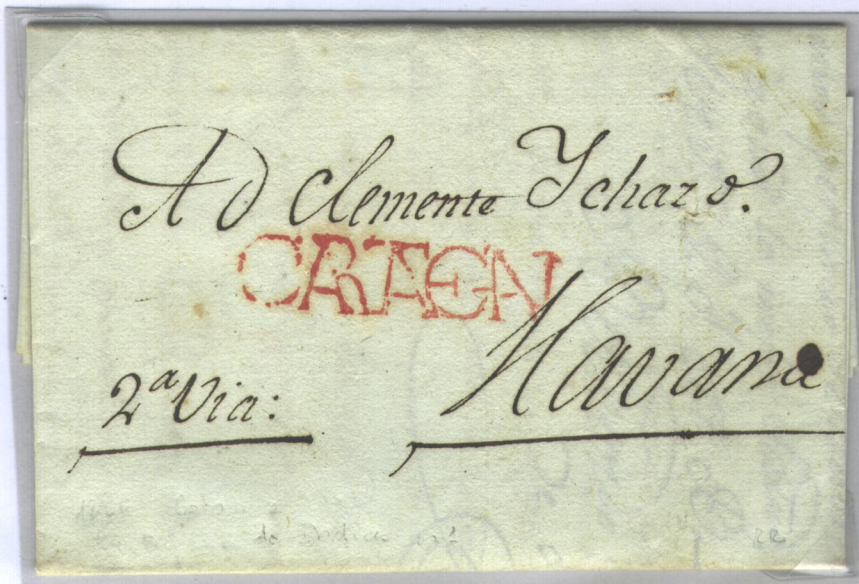 A D Clemente Ychazo.
CARTAGENA
Havana
2a Via:
RR